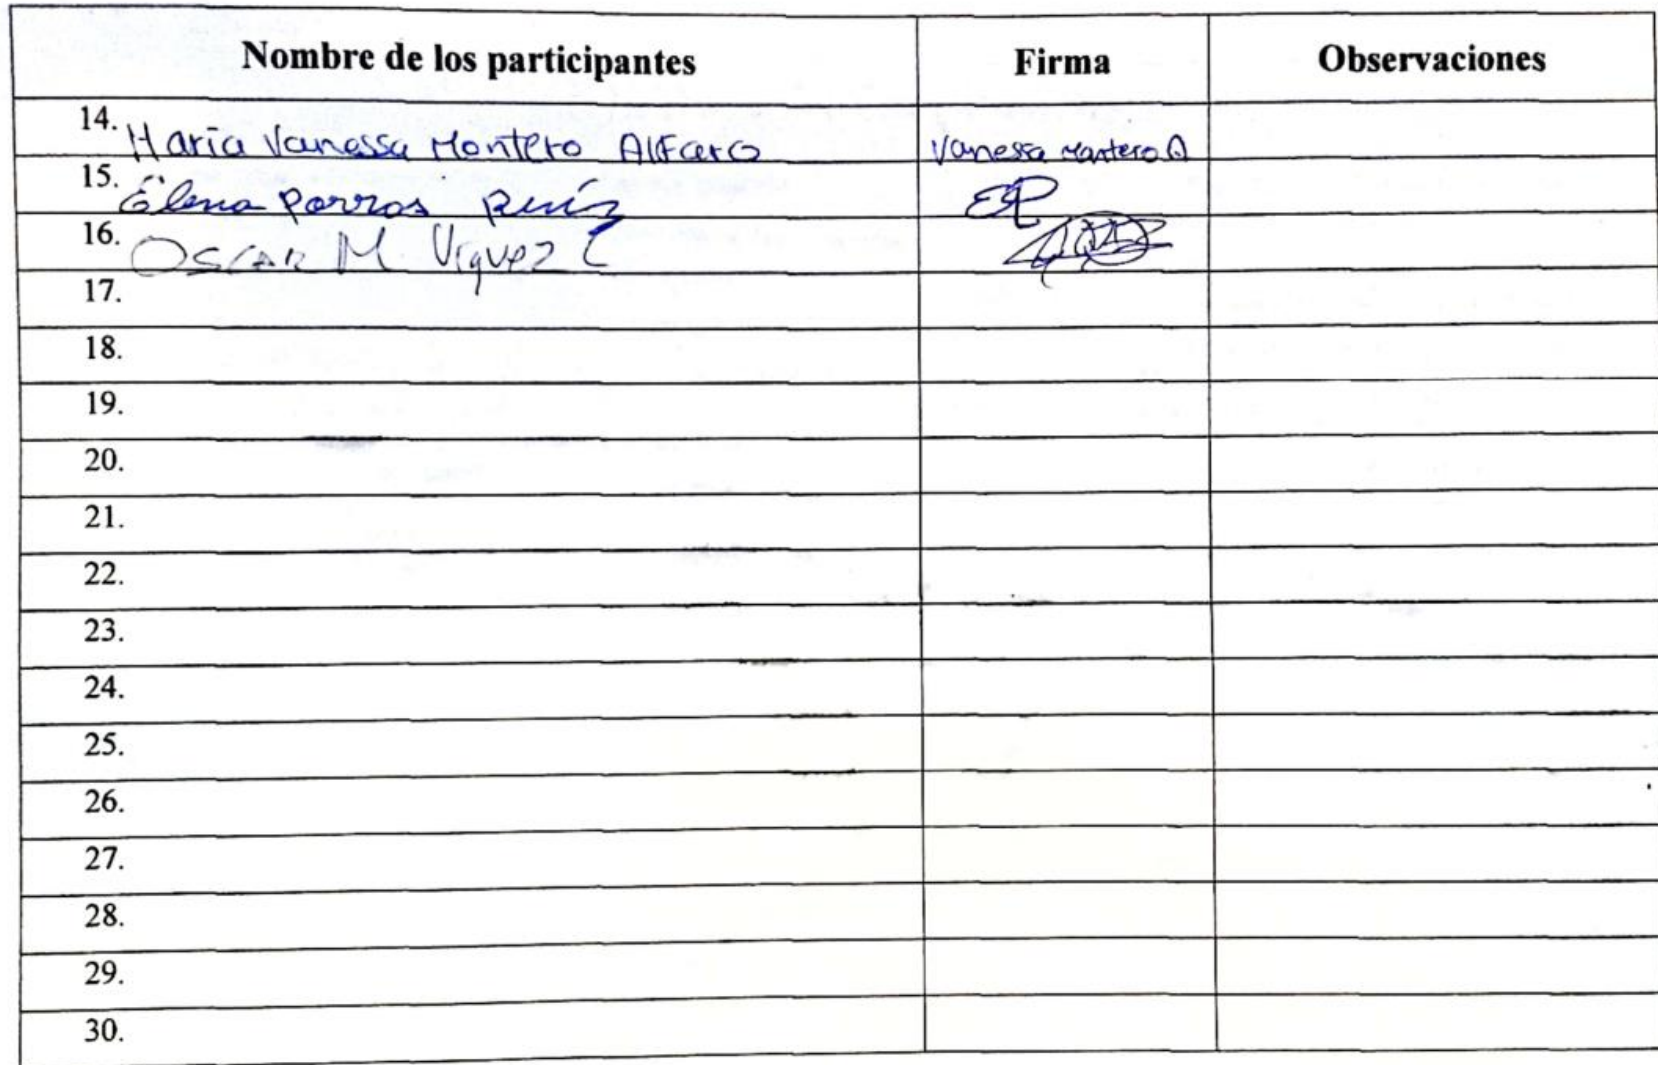 Nombre de los participantes Firma Observaciones
14. María Vanessa Montero Alfaro Vanessa Montero A
15. Elena Porras Ruíz EP
16. OSCAR M Víquez C
17.
18.
19.
20.
21.
22.
23.
24.
25.
26.
27.
28.
29.
30.